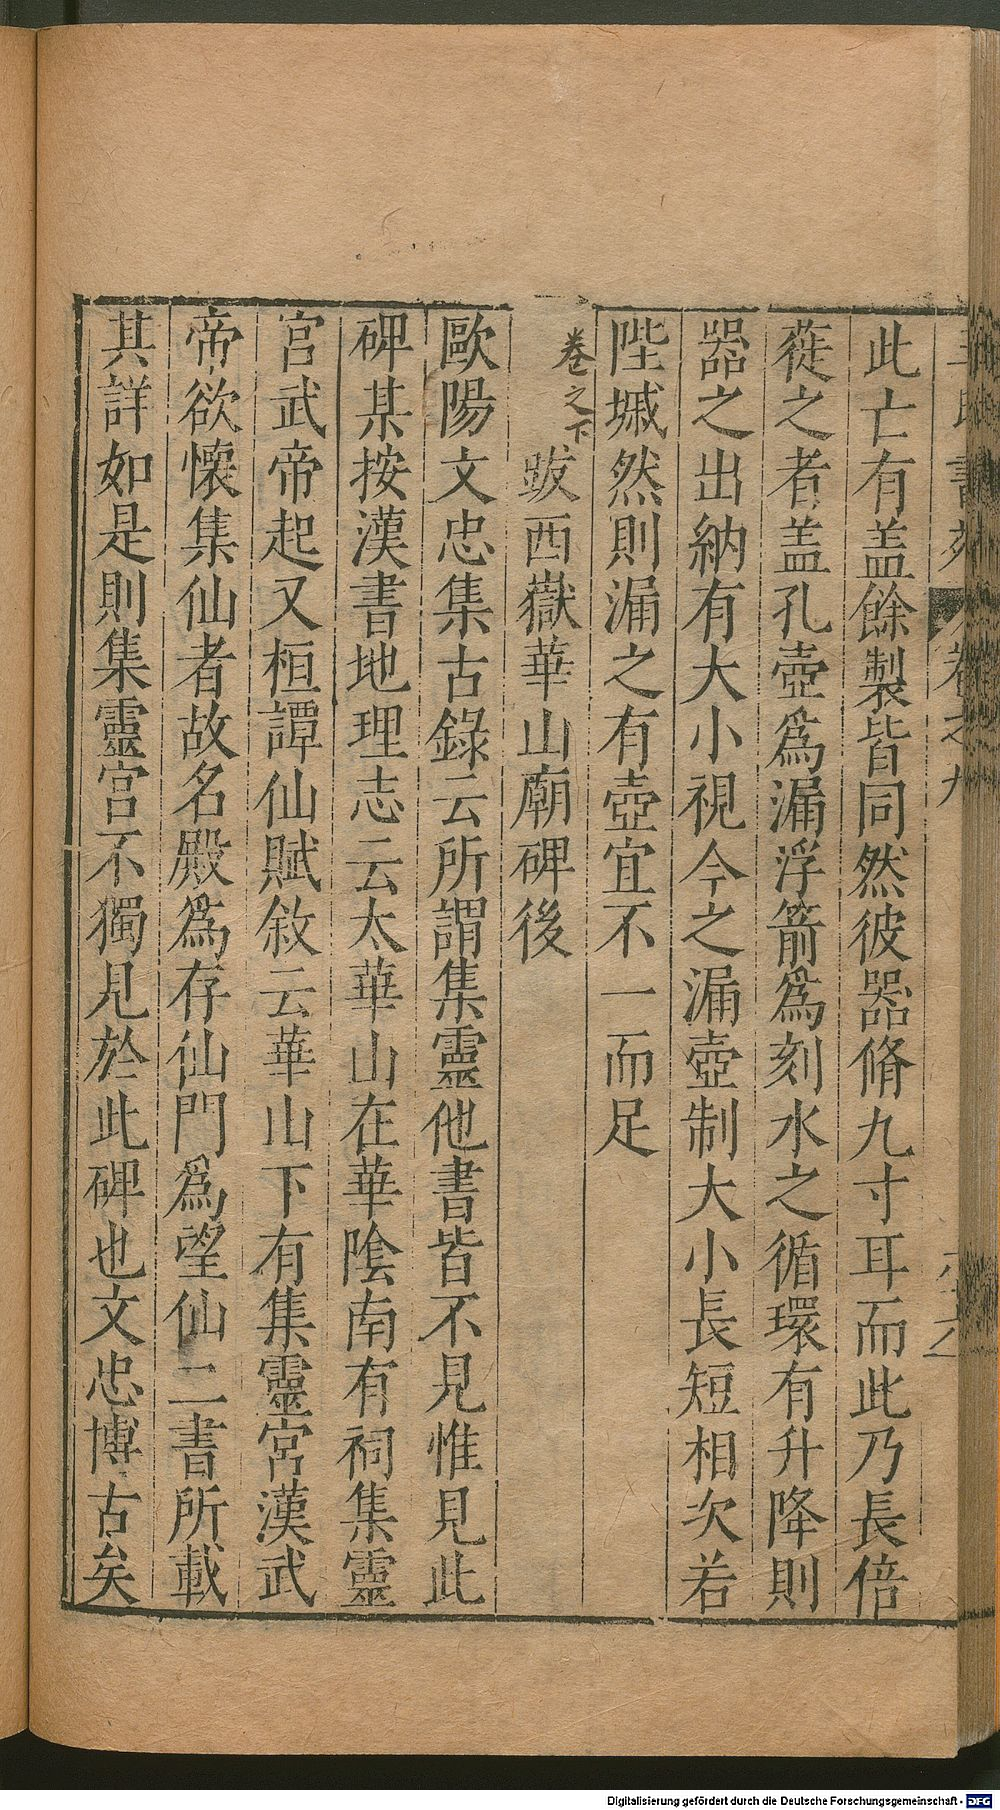 此亡有盖餘製皆同然彼器脩九寸耳而此乃長倍
蓰之者盖孔壺爲漏浮箭爲刻水之循環有升降則
器之出納有大小視今之漏壺制大小長短相次若
陛墄然則漏之有壺宜不一而足
卷之下
跋西嶽華山廟碑後
歐陽文忠集古錄云所謂集靈他書皆不見惟見此
碑某按漢書地理志云太華山在華陰南有祠集靈
宮武帝起又桓譚仙賦敘云華山下有集靈宮漢武
帝欲懷集仙者故名殿爲存仙門爲望仙二書所載
其詳如是則集靈宮不獨見於此碑也文忠博古矣
卷之九
Digitalisierung gefördert durch die Deutsche Forschungsgemeinschaft - DFG